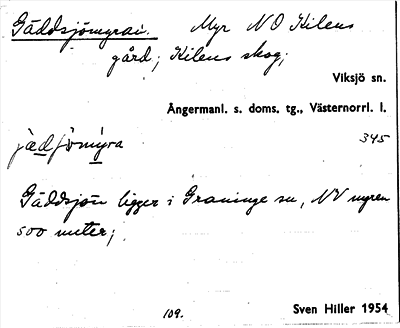 Gäddsjömyrai. Myr NO Kilens
gård; Kilens skog;
Viksjö sn.
Ångermanl. s. doms. tg., Västernorrl. l.
345
Gäddsjön ligger i Graninge sn, NV myren
500 meter;
109.
Sven Hiller 1954